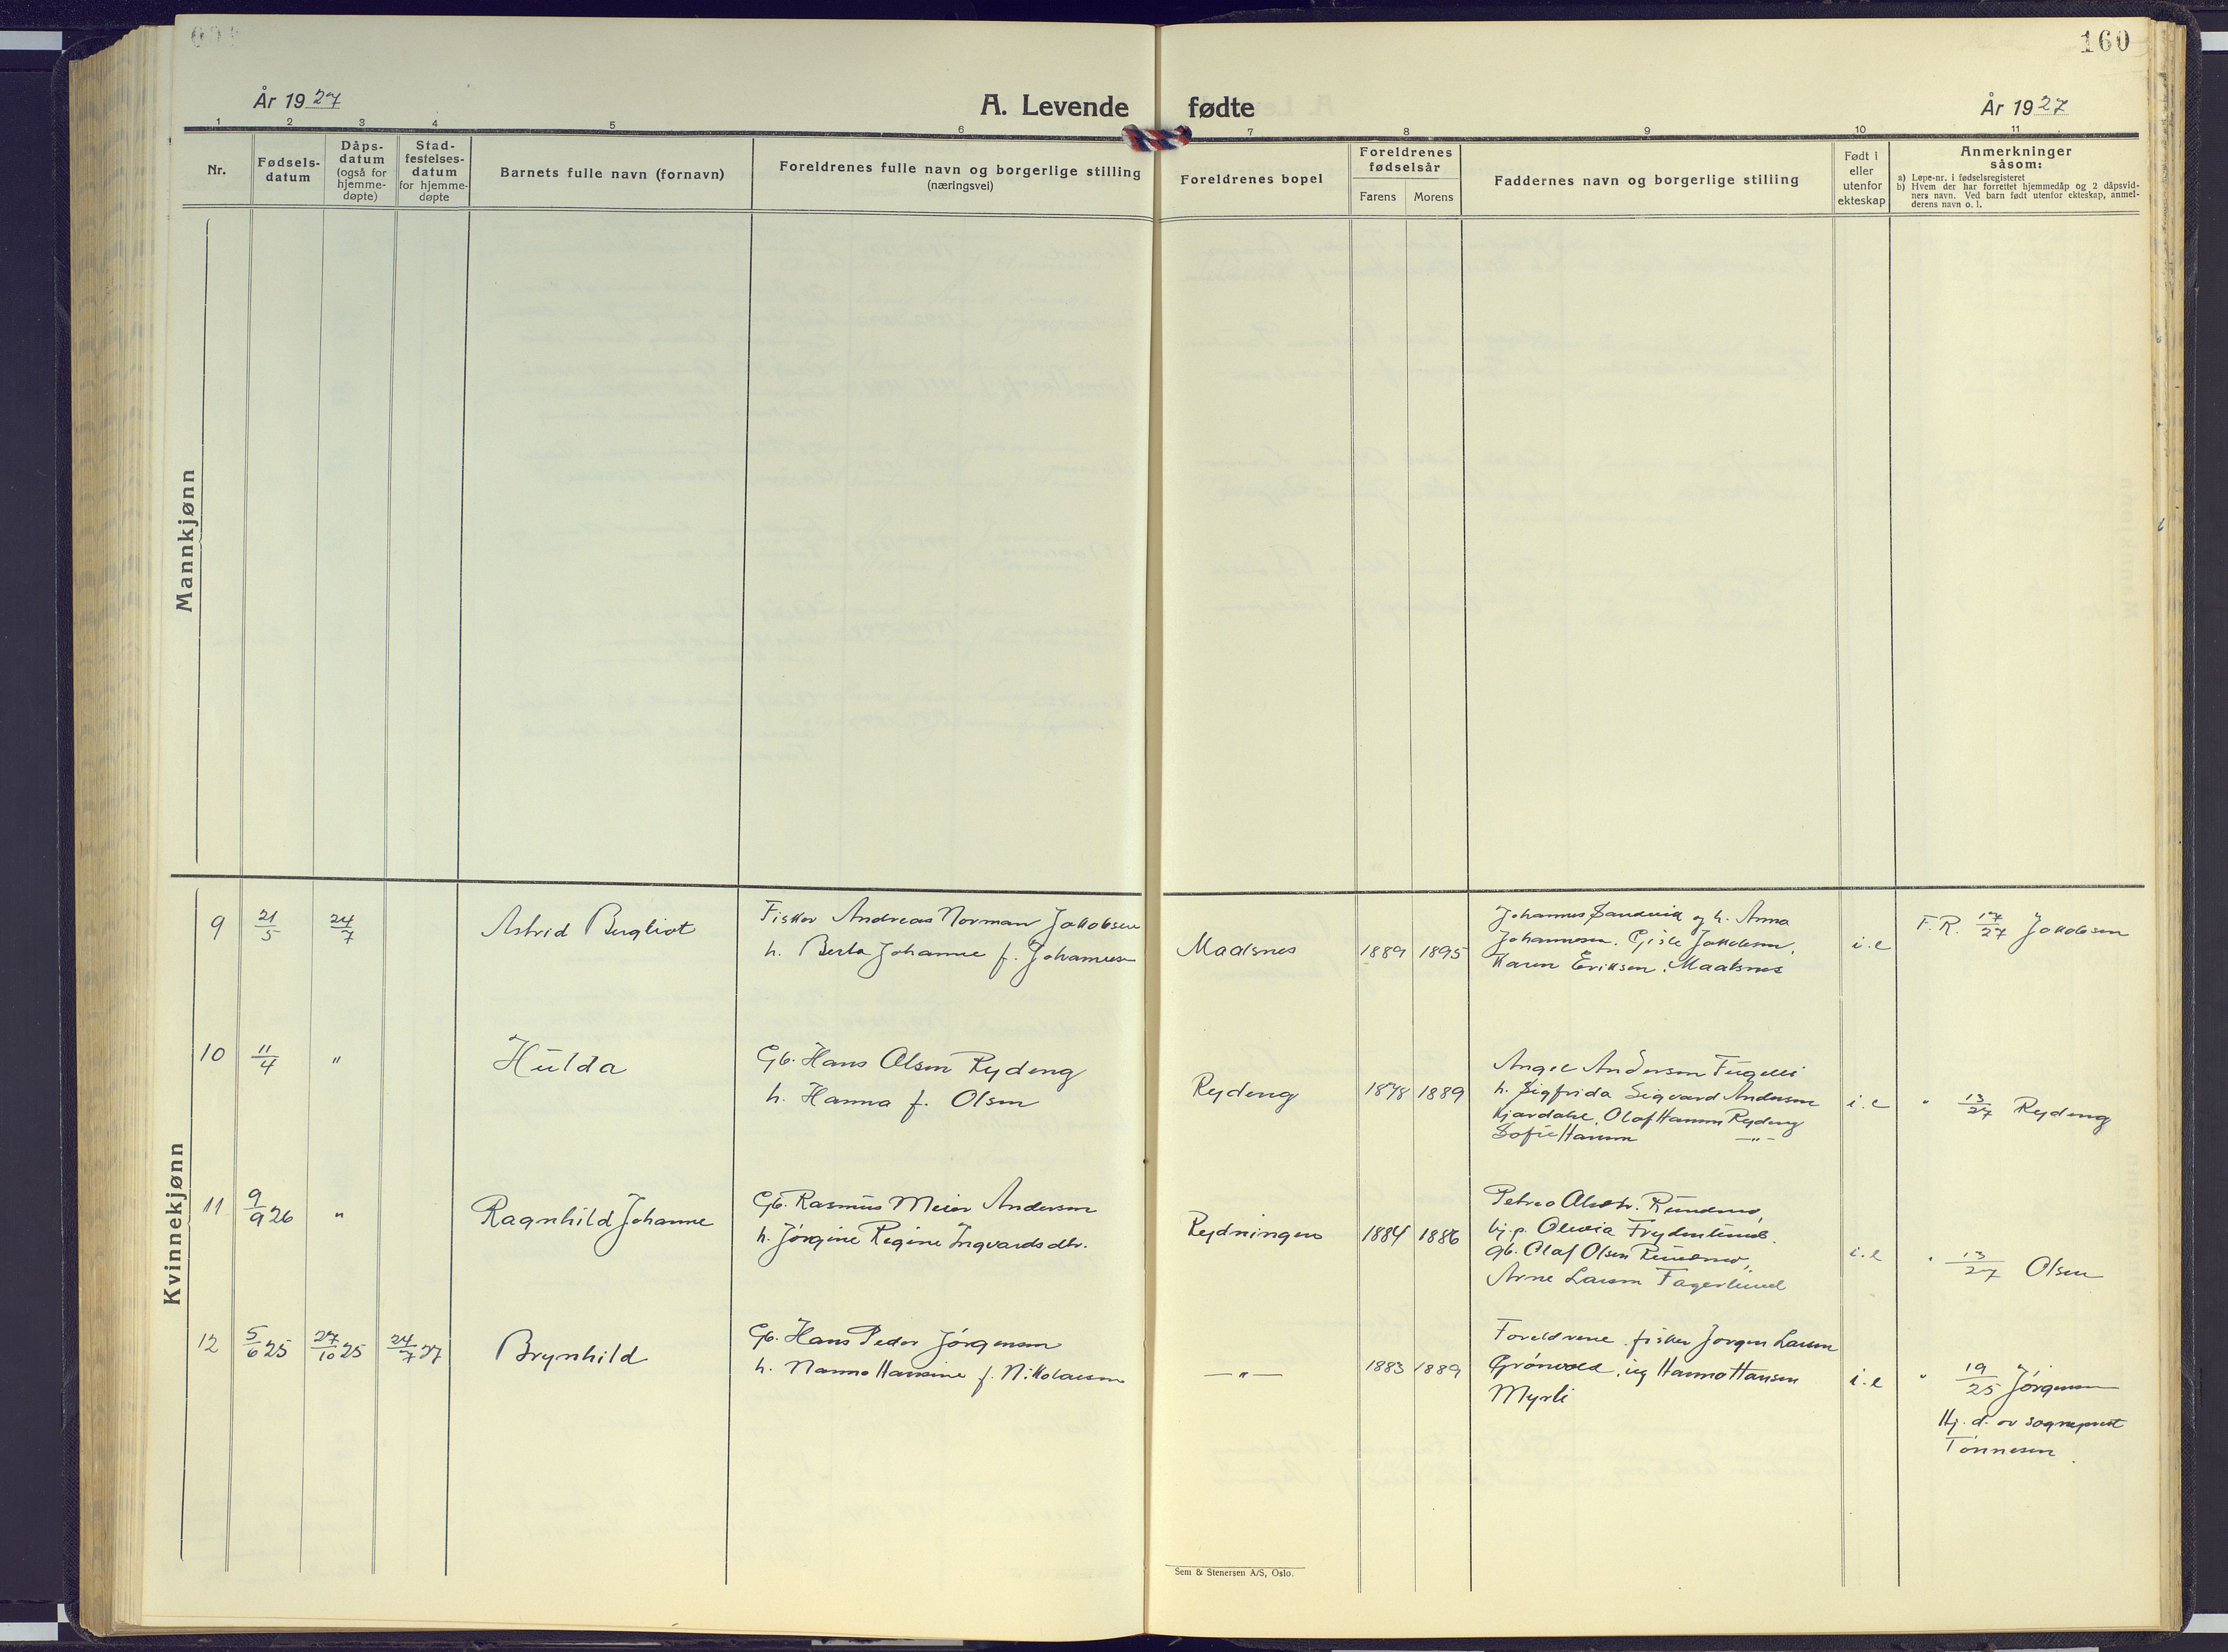 160
År 1927
A. Levende fødte
År 1927
1 2 3 4 5 6 7 8 9 10 11
Nr.
Fødsels-
datum
Dåps-
datum
(også for
hjemme-
døpte)
Stad-
festelses-
datum
for hjemme-
døpte
Barnets fulle navn (fornavn)
Foreldrenes fulle navn og borgerlige stilling
(næringsvei)
Foreldrenes bopel
Foreldrenes
fødselsår
Farens
Morens
Faddernes navn og borgerlige stilling
Født i
eller
utenfor
ekteskap
Anmerkninger
såsom:
a) Løpe-nr. i fødselsregisteret
b) Hvem der har forrettet hjemmedåp og 2 dåpsvid-
ners navn. Ved barn født utenfor ekteskap, anmel-
derens navn o. l.
Mannkjønn
Kvinnekjønn
9
21/5
24/7
Astrid Bergliot
Fisker Andreas Norman Jakobsen
h. Berta Johanne f. Johannesen
Maalsnes
1889
1895
Johannes Sandvik og h. Anna
Johannesen. Gisle Jakobsen,
Karen Eriksen. Maalsnes
i.e
F.R. 17/27 Jakobsen
10
11/4
"
Hulda
Gb. Hans Olsen Rydeng
h. Hanna f. Olsen
Rydeng
1878
1889
Angel Andersen Fugelli
h. Sigfrida Sigvard Andersen
Kjardahl, Olaf Hansen Rydeng
Sofie Hansen —"—
i.e
" 13/27 Rydeng
11
9/9 26
"
Ragnhild Johanne
Gb. Rasmus Meier Andersen
h. Jørgine Regine Ingvardsdtr.
Rydningen
1884
1886
Petrea Olsdtr.
hj.p. Olevia Frydenlund.
gb. Olaf Olsen
Arne Larsen Fagerlund
i.e
" 13/27 Olsen
12
5/6 25
27/10 25
24/7 27
Brynhild
Gb. Hans Peder Jørgensen
h. Nanna Hansine f. Nikolaisen
—"—
1883
1889
Foreldrene, fisker Jørgen Larsen
Grønvold, ug Hanna Hansen
Myrli
i.e
" 19/25 Jørgensen
Hj. d. av sogneprest
Tønnesen.
Sem & Stenersen A/S, Oslo.